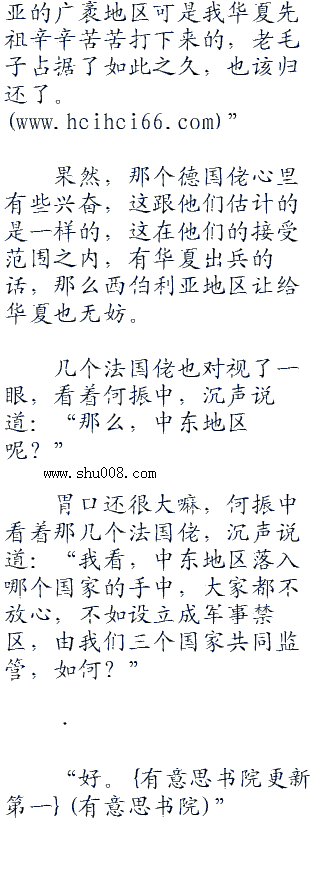 亚的广袤地区可是我华夏先
祖辛辛苦苦打下来的，老毛
子占据了如此之久，也该归
还了。
(www.hcihci66.com)”
果然，那个德国佬心里
有些兴奋，这跟他们估计的
是一样的，这在他们的接受
范围之内，有华夏出兵的
话，那么西伯利亚地区让给
华夏也无妨。
几个法国佬也对视了一
眼，看着何振中，沉声说
道：“那么，中东地区
呢？”
www.shu008.com
胃口还很大嘛，何振中
看着那几个法国佬，沉声说
道：“我看，中东地区落入
哪个国家的手中，大家都不
放心，不如设立成军事禁
区，由我们三个国家共同监
管，如何？”
.
“好。{有意思书院更新
第一}(有意思书院)”